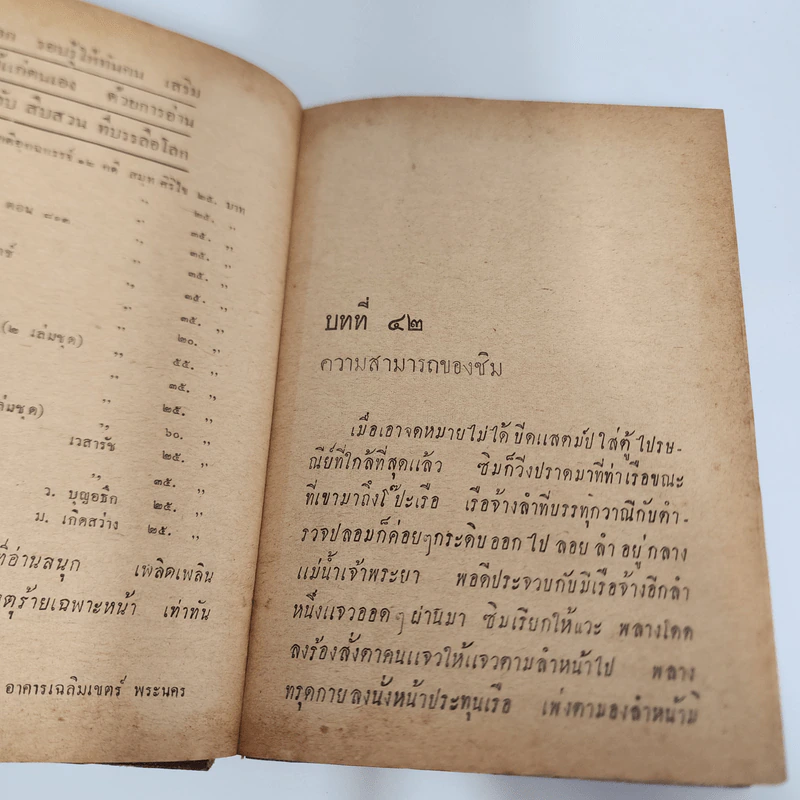 รอบรู้ให้ทันคน เสริม
แก่ตนเอง ด้วยการอ่าน
สืบสวน ที่บรรลือโลก
๑๒ คดี สมุท ศิริไข ๒๕. บาท
„ ๒๕. „
ตอน ๘๐๑ „ ๓๕. „
„ ๓๕. „
„ ๓๕. „
„ ๓๕. „
(๒ เล่มชุด) „ ๒๐. „
„ ๕๕. „
„ ๓๕. „
เล่มชุด) „ ๒๕. „
เวสารัช ๖๐. „
„ ๒๕. „
„ ๓๕. „
ว. บุญอธึก ๒๕. „
ม. เกิดสว่าง ๒๕. „
ที่อ่านสนุก เพลิดเพลิน
เหตุร้ายเฉพาะหน้า เท่าทัน
อาคารเฉลิมเขตร์ พระนคร
บทที่ ๔๒
ความสามารถของซิม
เมื่อเอาจดหมายไม่ได้ ปีดแสตมป์ ใส่ตู้ ไปรษ-
ณีย์ที่ใกล้ที่สุดแล้ว ซิมก็วิ่งปราดมาที่ท่าเรือขณะ
ที่เขามาถึงโป๊ะเรือ เรือจ้างลำที่บรรทุกวาณีกับตำ-
รวจปลอมก็ค่อยๆกระดิบออกไป ลอยลำอยู่กลาง
แม่น้ำเจ้าพระยา พอดีประจวบกับมีเรือจ้างอีกลำ
หนึ่งแจวออดๆผ่านมา ซิมเรียกให้แวะ พลางโดด
ลงร้องสั่งตาคนแจวให้แจวตามลำหน้าไป พลาง
ทรุดกายลงนั่งหน้าประทุนเรือ เพ่งตามองลำหน้ามิ